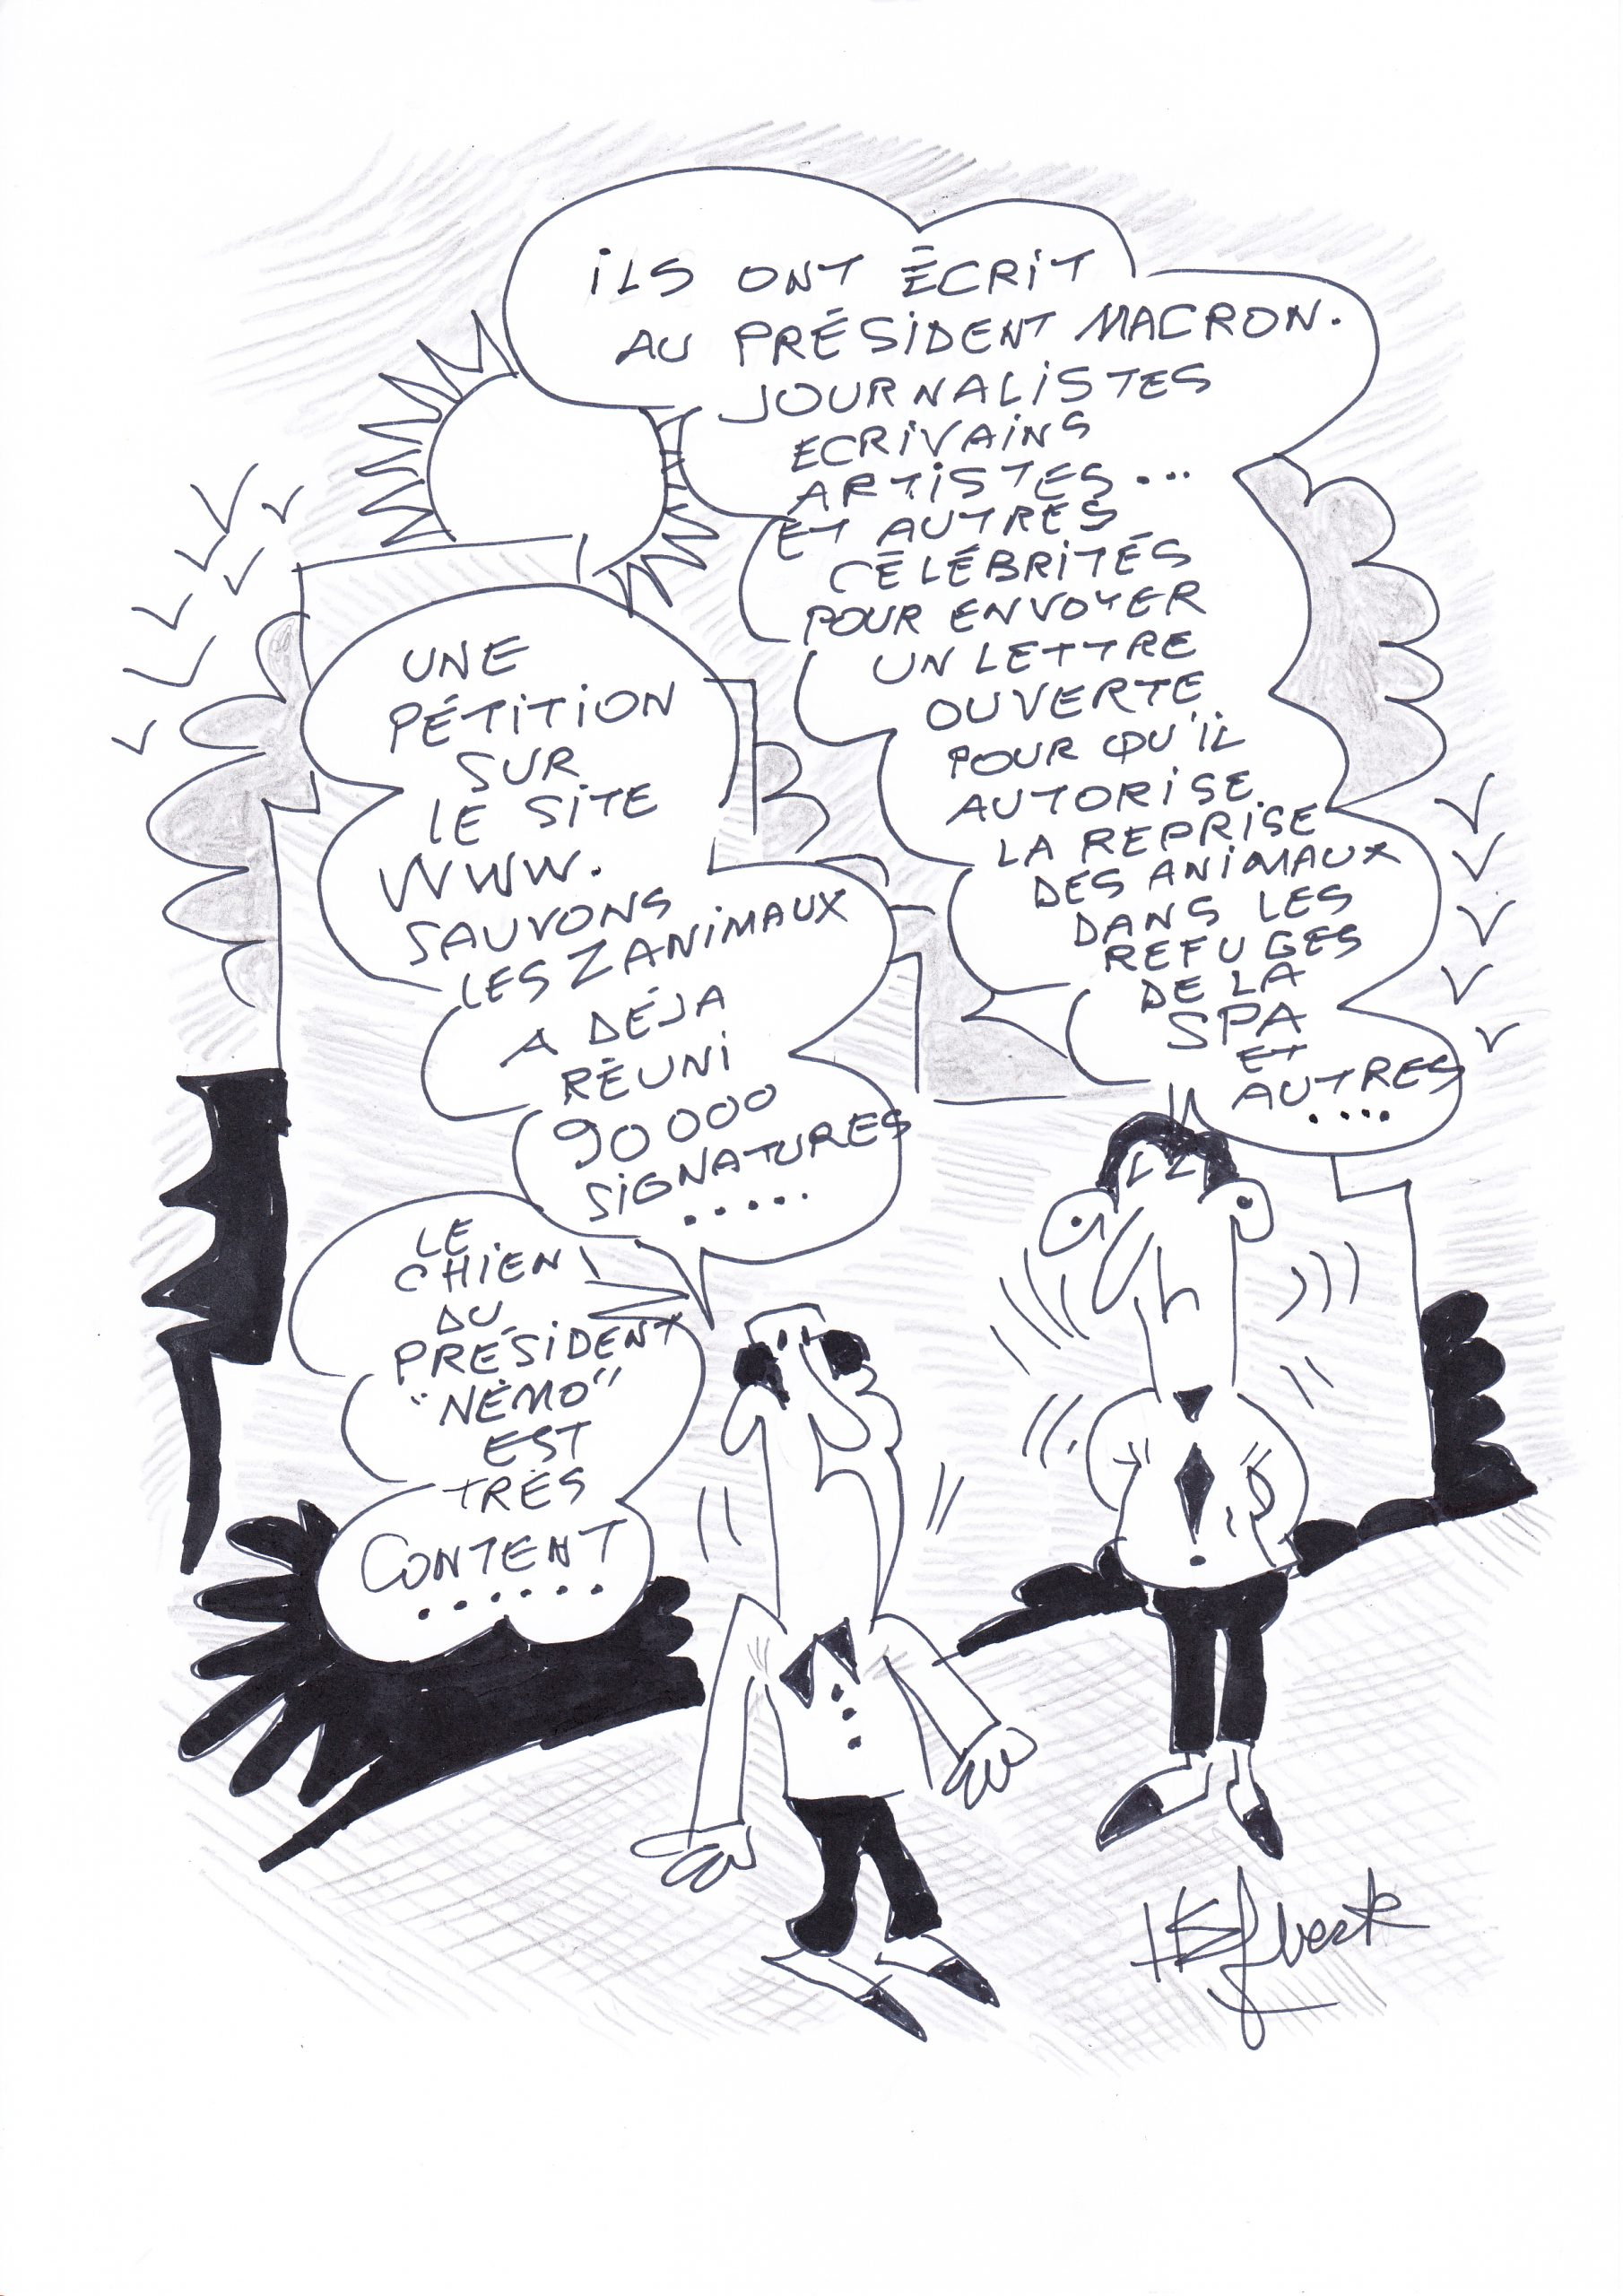 ILS ONT ÉCRIT
AU PRÉSIDENT MACRON.
JOURNALISTES
ECRIVAINS
ARTISTES...
ET AUTRES
CÉLÉBRITÉS
POUR ENVOYER
UN LETTRE
OUVERTE
POUR QU'IL
AUTORISE
LA REPRISE
DES ANIMAUX
DANS LES
REFUGES
DE LA
SPA
ET
AUTRES
....
UNE
PÉTITION
SUR
LE SITE
WWW.
SAUVONS
LES ZANIMAUX
A DÉJA
RÉUNI
90000
SIGNATURES
.....
LE
CHIEN
DU
PRÉSIDENT
"NÉMO"
EST
TRÈS
CONTENT
......